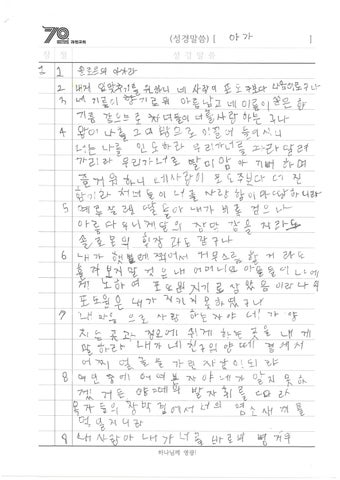 70 과천교회 (성경말씀) [ 아가 ]
장 절 성경말씀
1 1 솔로몬의 아가라
2 내게 입맞추기를 원하니 네 사랑이 포도주보다 나음이로구나
3 네 기름이 향기로워 아름답고 네 이름이 쏟은 향
기름 같으므로 처녀들이 너를 사랑하는구나
4 왕이 나를 그의 방으로 이끌어 들이시니
너는 나를 인도하라 우리가 너를 따라 달려
가리라 우리가 너로 말미암아 기뻐하며
즐거워하니 네 사랑이 포도주보다 더 진
함이라 처녀들이 너를 사랑함이 마땅하니라
5 예루살렘 딸들아 내가 비록 검으나
아름다우니 게달의 장막 같을지라도
솔로몬의 휘장과도 같구나
6 내가 햇볕에 쬐어서 거무스름할지라도
흘겨보지 말 것은 내 어머니의 아들들이 나에
게 노하여 포도원지기로 삼았음이라 나의
포도원은 내가 지키지 못하였구나
7 내 마음으로 사랑하는 자야 네가 양
치는 곳과 정오에 쉬게 하는 곳을 내게
말하라 내가 네 친구의 양 떼 곁에서
어찌 얼굴을 가린 자 같이 되랴
8 여인 중에 어여쁜 자야 네가 알지 못하
겠거든 양 떼의 발자취를 따라
목자들의 장막 곁에서 너의 염소 새끼를
먹일지니라
9 내 사랑아 내가 너를 바로의 병거의
하나님께 영광!